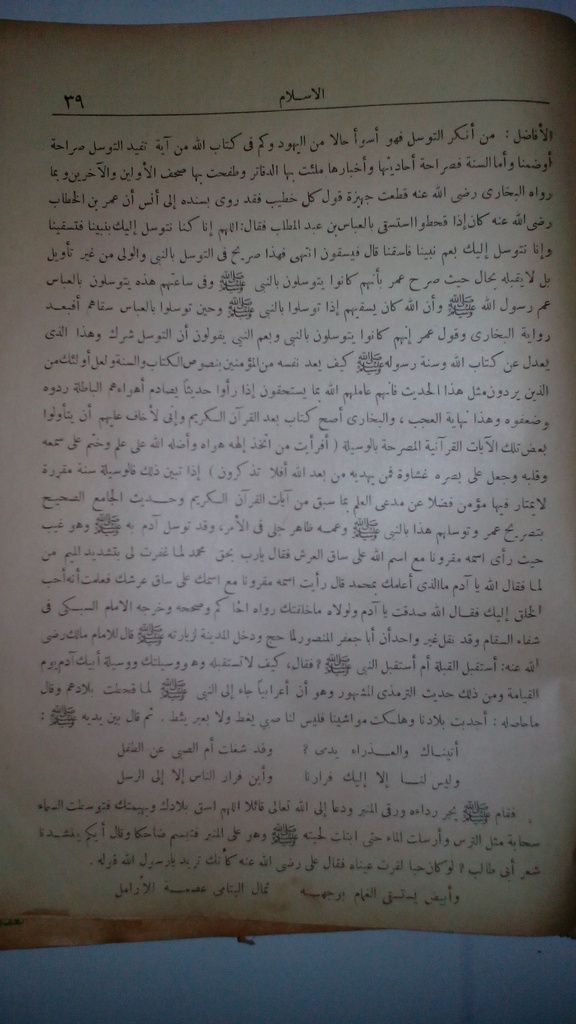 الاسلام
٣٩
الأفاضل : من أنكر التوسل فهو أسوأ حالا من اليهود وكم فى كتاب الله من آية تفيد التوسل صراحة
أوضمنا وأما السنة فصراحة أحاديثها وأخبارها ملئت بها الدفاتر وطفحت بها صحف الأولين والآخرين وبما
رواه البخارى رضى الله عنه قطعت جهيزة قول كل خطيب فقد روى بسنده إلى أنس أن عمر بن الخطاب
رضى الله عنه كان إذا قحطوا استسقى بالعباس بن عبد المطلب فقال: اللهم إنا كنا نتوسل إليك بنبينا فتسقينا
وإنا نتوسل إليك بعم نبينا فاسقنا قال فيسقون انتهى فهذا صريح فى التوسل بالنبى والولى من غير تأويل
بل لا يقبله بحال حيث صرح عمر بأنهم كانوا يتوسلون بالنبى ﷺ وفى ساعتهم هذه يتوسلون بالعباس
عم رسول الله ﷺ وأن الله كان يسقيهم إذا توسلوا بالنبى ﷺ وحين توسلوا بالعباس سقاهم أفبعد
رواية البخارى وقول عمر إنهم كانوا يتوسلون بالنبى وبعم النبى يقولون أن التوسل شرك وهذا الذى
يعدل عن كتاب الله وسنة رسوله ﷺ كيف يعد نفسه من المؤمنين بنصوص الكتاب والسنة ولعل أولئك من
الذين يردون مثل هذا الحديث فانهم عاملهم الله بما يستحقون إذا رأوا حديثاً يصادم أهراءهم الباطلة ردوه
وضعفوه وهذا نهاية العجب ، والبخارى أصح كتاب بعد القرآن الكريم وإنى لأخاف عليهم أن يتأولوا
بعض تلك الآيات القرآنية المصرحة بالوسيلة ( أفرأيت من اتخذ إلهه هراه وأضله الله على علم وختم على سمعه
وقلبه وجعل على بصره غشاوة فمن يهديه من بعد الله أفلا تذكرون ) إذا تبين ذلك فالوسيلة سنة مقررة
لا يمتار فيها مؤمن فضلا عن مدعى العلم بما سبق من آيات القرآن الكريم وحديث الجامع الصحيح
بتصريح عمر وتوسلهم هذا بالنبى ﷺ وعمه ظاهر جلى فى الأمر، وقد توسل آدم به ﷺ وهو غيب
حيث رأى اسمه مقرونا مع اسم الله على ساق العرش فقال يارب بحق محمد لما غفرت لى بتشديد الميم من
لما فقال الله يا آدم ما الذى أعلمك بمحمد قال رأيت اسمه مقرونا مع اسمك على ساق عرشك فعلمت أنه أحب
الخلق إليك فقال الله صدقت يا آدم ولولاه ما خلقتك رواه الحاكم وصححه وخرجه الامام السبكى فى
شفاء السقام وقد نقل غير واحد أن أبا جعفر المنصور لما حج ودخل المدينة لزيارته ﷺ قال للامام مالك رضى
الله عنه: أستقبل القبلة أم أستقبل النبى ﷺ ؟ فقال، كيف لا تستقبله وهو وسيلتك ووسيلة أبيك آدم يوم
القيامة ومن ذلك حديث الترمذى المشهور وهو أن أعرابياً جاء إلى النبى ﷺ لما قحطت بلادهم وقال
ما حاصله : أجدبت بلادنا وهلكت مواشينا فليس لنا صبي يغط ولا بعير يئط . ثم قال بين يديه ﷺ :
أتيناك والعذراء يدمى ؟ وقد شغلت أم الصبى عن الطفل
وليس لنا إلا إليك فرارنا وأين فرار الناس إلا إلى الرسل
فقام ﷺ يجر رداءه ورقى المنبر ودعا إلى الله تعالى قائلا اللهم اسق بلادك وبهيمتك فتوسطت السماء
سحابة مثل الترس وأرسلت الماء حتى ابتلت لحيته ﷺ وهو على المنبر فتبسم ضاحكا وقال أيكم ينشدنا
شعر أبى طالب ؟ لو كان حيا لقرت عيناه فقال على رضى الله عنه كأنك تريد يارسول الله قوله .
وأبيض يستسقى الغمام بوجهه ثمال اليتامى عصمة للأرامل